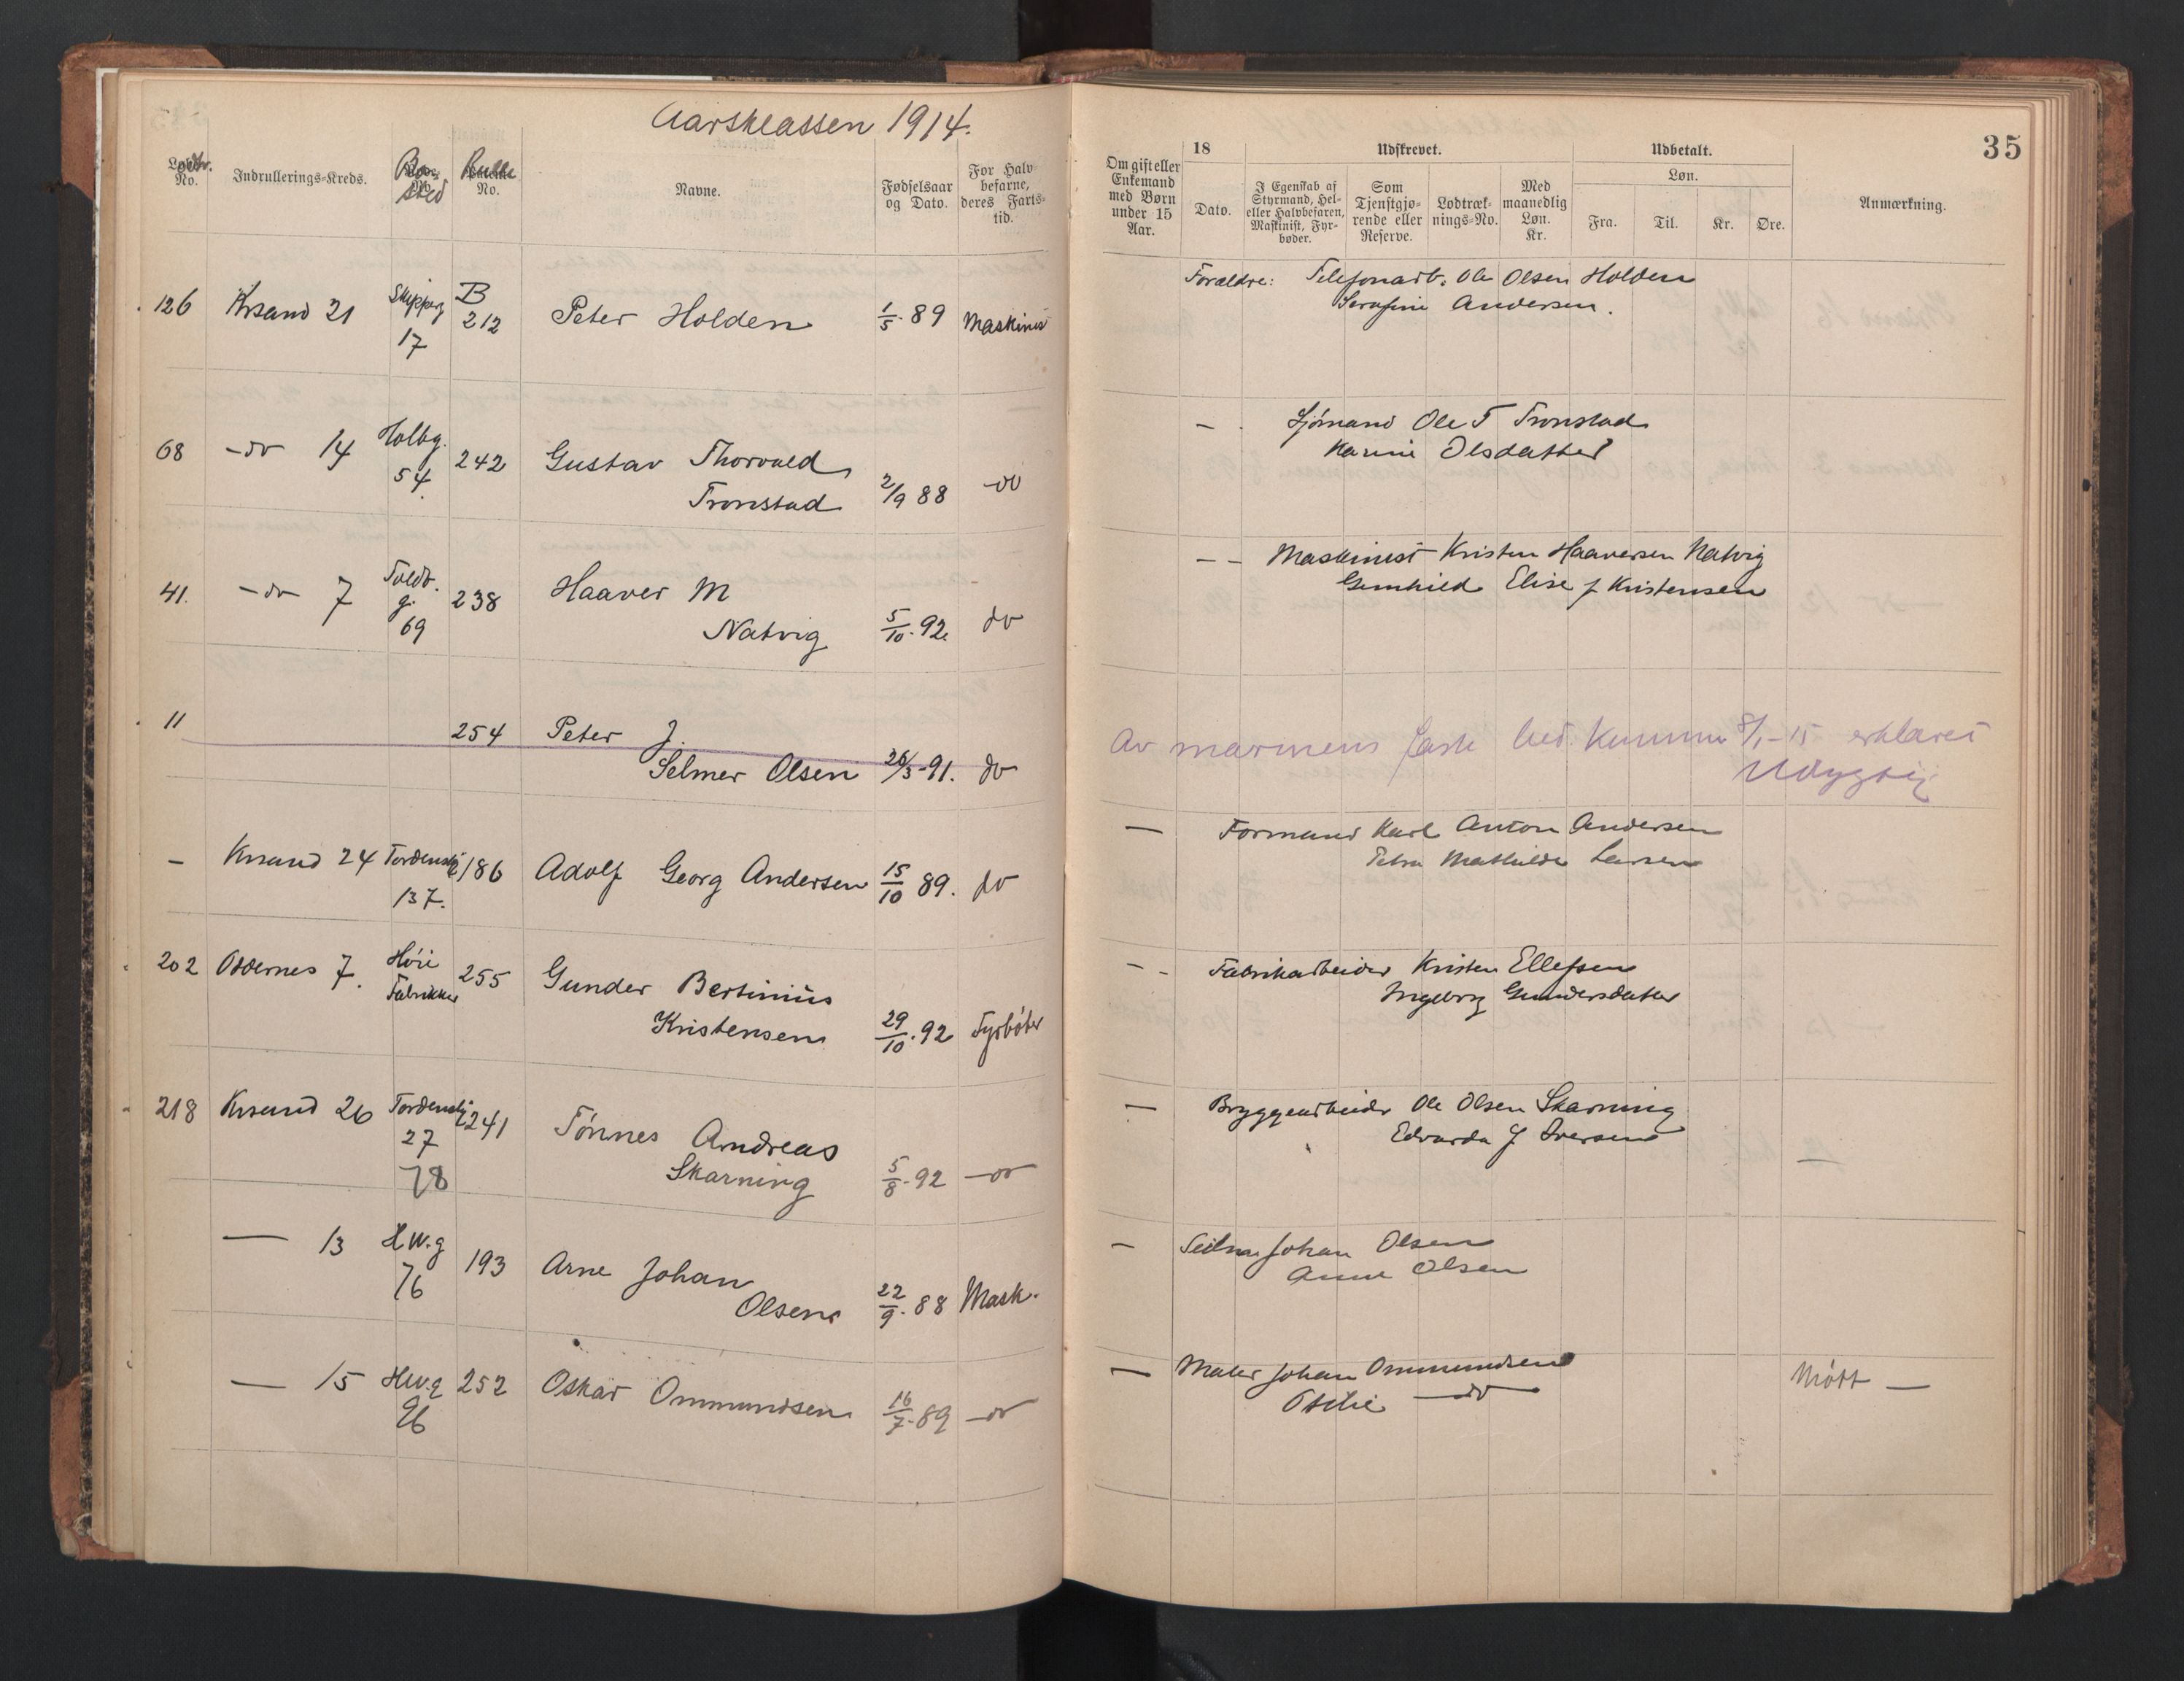 Aarsklassen 1914.
35
Lodtr. No.
Indrullerings-Kreds.
Bosted
Rulle No.
Navne.
Fødselsaar og Dato.
For Halvbefarne, deres Fartstid.
Om gift eller Enkemand med Børn under 15 Aar.
18
Dato.
Udskrevet.
I Egenskab af Styrmand, Hel- eller Halvbefaren, Maskinist, Fyrbøder.
Som Tjenstgjørende eller Reserve.
Lodtræknings-No.
Med maanedlig Løn. Kr.
Udbetalt.
Løn.
Fra.
Til.
Kr.
Øre.
Anmærkning.
126 Krsand 21 Skipperg 17 B 212 Peter Holden 1/5. 89 Maskinist
Forældre: Telefonarb. Ole Olsen Holden
Serafine Andersen.
68 -do- 14 Holbg. 54 242 Gustav Thorvald
Tronstad 2/9 88 do
- Sjömand Ole T Tronstad
Karine Olsdatter
41. -do- 7 Toldb.g. 69 238 Haaver M
Natvig 5/10. 92. do
- - Maskinist Kristen Haaversen Natvig
Gunhild Elise f Kristensen
11 254 Peter J.
Selmer Olsen 26/3-91. do
Av marinens faste 8/1-15 erklæret
Udygtig
- Krsand 24 Tordenskj 137. 186 Adolf Georg Andersen 15/10 89. do
- Formand Karl Anton Andersen
Petra Mathilde Larsen
202 Oddernes 7. Höie Fabrikker 255 Gunder Bertinius
Kristensen 29/10. 92 Fyrböter
- - Fabrikarbeider Kristen Ellefsen
Ingeborg Gundersdatter
218 Krsand 26 Tordenskj 27 78 241 Tönnes Andreas
Skarning 5/8. 92 -do
- Bryggearbeider Ole Olsen Skarning
Edvarda f Iversen
— 13 H.W.g 76 193 Arne Johan
Olsen 22/9. 88 Mask.
- Johan Olsen
Anne Olsen
— 15 H.W.g 96 252 Oskar Ommundsen 16/7. 89 -do
- Maler Johan Ommundsen
Otilie —do—
Mött —